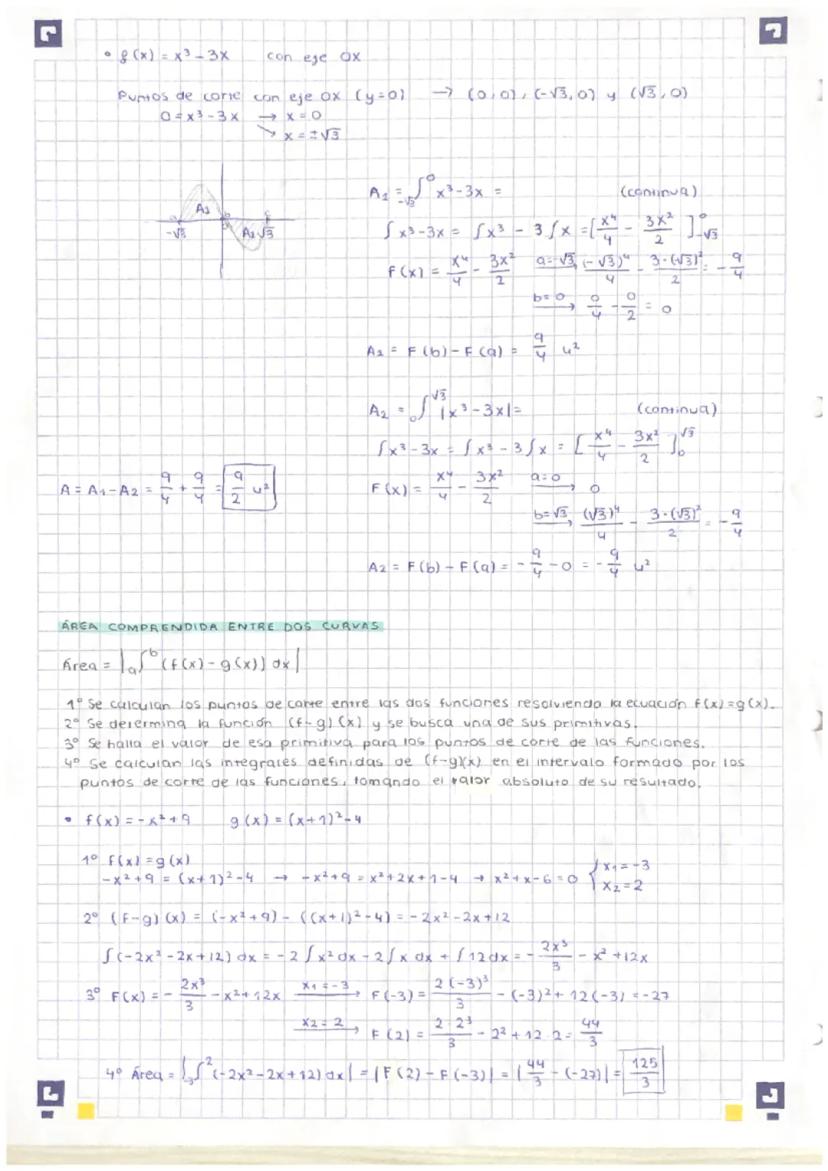 • f(x) = x³ - 3x con eje OX
Puntos de corte con eje OX (y=0) → (0,0), (-√3,0) y (√3,0)
0 = x³ - 3x → x = 0
↘ x = ±√3
A₁ = ₋√3∫⁰ x³ - 3x = (continua)
∫ x³ - 3x = ∫x³ - 3∫x = [x⁴/4 - 3x²/2]⁰₋√3
F(x) = x⁴/4 - 3x²/2 a=-√3→ (-√3)⁴/4 - 3·(√3)²/2 = -9/4
b=0→ 0/4 - 0/2 = 0
A₁ = F(b) - F(a) = 9/4 u²
A₁ A₂
-√3 √3
A₂ = ₀∫√3 |x³ - 3x| = (continua)
∫x³ - 3x = ∫x³ - 3∫x = [x⁴/4 - 3x²/2]√3₀
A = A₁ - A₂ = 9/4 + 9/4 = 9/2 u²
F(x) = x⁴/4 - 3x²/2 a=0→ 0
b=√3→ (√3)⁴/4 - 3·(√3)²/2 = -9/4
A₂ = F(b) - F(a) = -9/4 - 0 = -9/4 u²
ÁREA COMPRENDIDA ENTRE DOS CURVAS
Área = |ₐ∫ᵇ (f(x) - g(x)) dx|
1º Se calculan los puntos de corte entre las dos funciones resolviendo la ecuación f(x) = g(x).
2º Se determina la función (f-g)(x) y se busca una de sus primitivas.
3º Se halla el valor de esa primitiva para los puntos de corte de las funciones.
4º Se calculan las integrales definidas de (f-g)(x) en el intervalo formado por los
puntos de corte de las funciones, tomando el valor absoluto de su resultado.
• f(x) = -x² + 9 g(x) = (x+1)² - 4
1º f(x) = g(x)
-x² + 9 = (x+1)² - 4 → -x² + 9 = x² + 2x + 1 - 4 → x² + x - 6 = 0 { x₁ = -3
x₂ = 2
2º (f-g)(x) = (-x² + 9) - ((x+1)² - 4) = -2x² - 2x + 12
∫(-2x² - 2x + 12) dx = -2∫x² dx - 2∫x dx + ∫12 dx = -2x³/3 - x² + 12x
3º F(x) = -2x³/3 - x² + 12x x₁ = -3→ F(-3) = 2(-3)³/3 - (-3)² + 12(-3) = -27
x₂ = 2→ F(2) = 2·2³/3 - 2² + 12·2 = 44/3
4º Área = |₋₃∫² (-2x² - 2x + 12) dx| = |F(2) - F(-3)| = |44/3 - (-27)| = 125/3